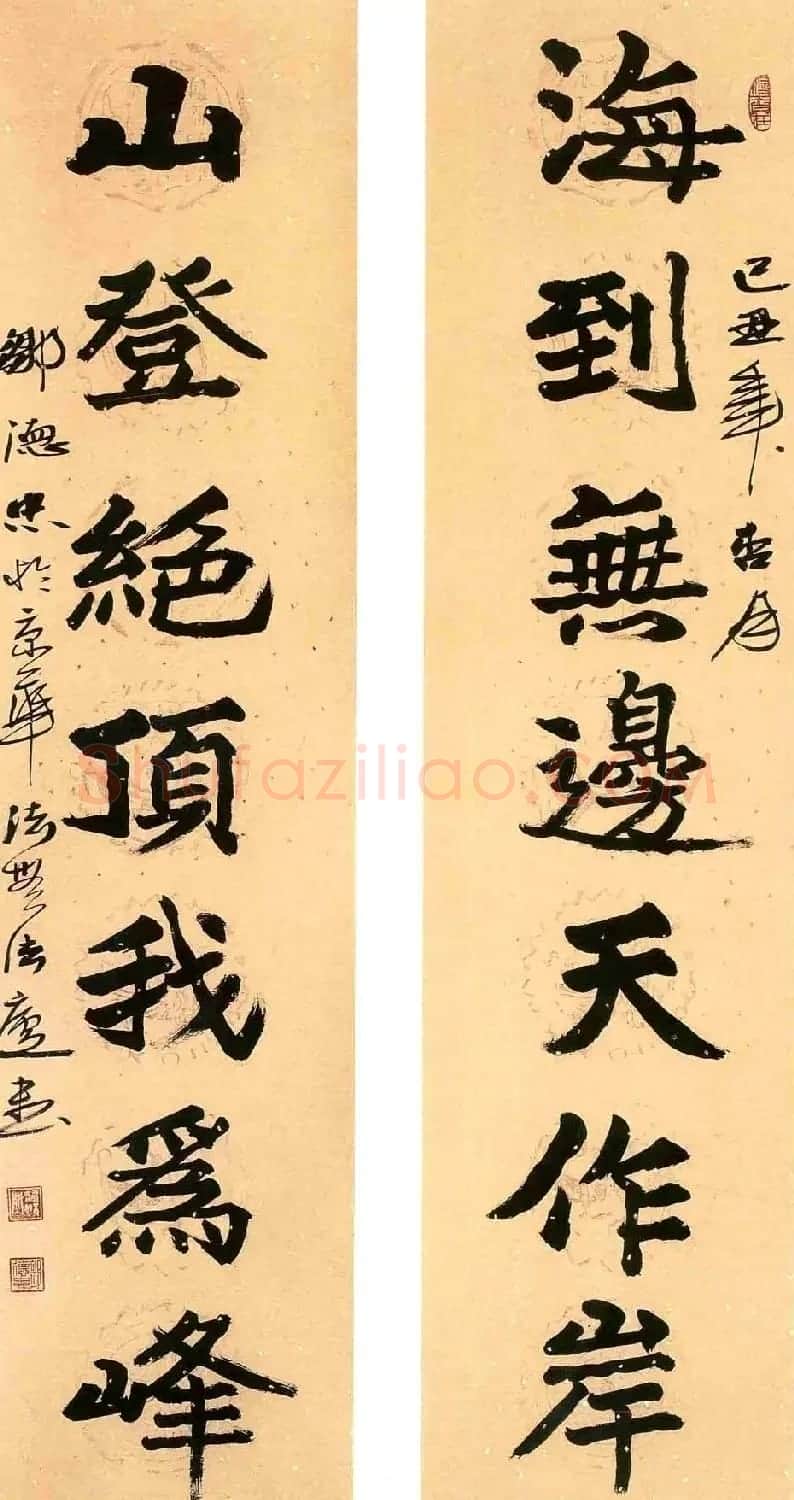 海到無邊天作岸
己丑年杏月
山登絕頂我為峰
鄒德忠於京華法無法廬書
Shufaziliao.com